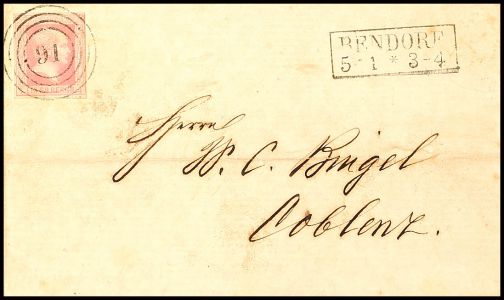 91
BENDORF
5 1 * 3-4
Herrn
W. C. Bingel
Coblenz.